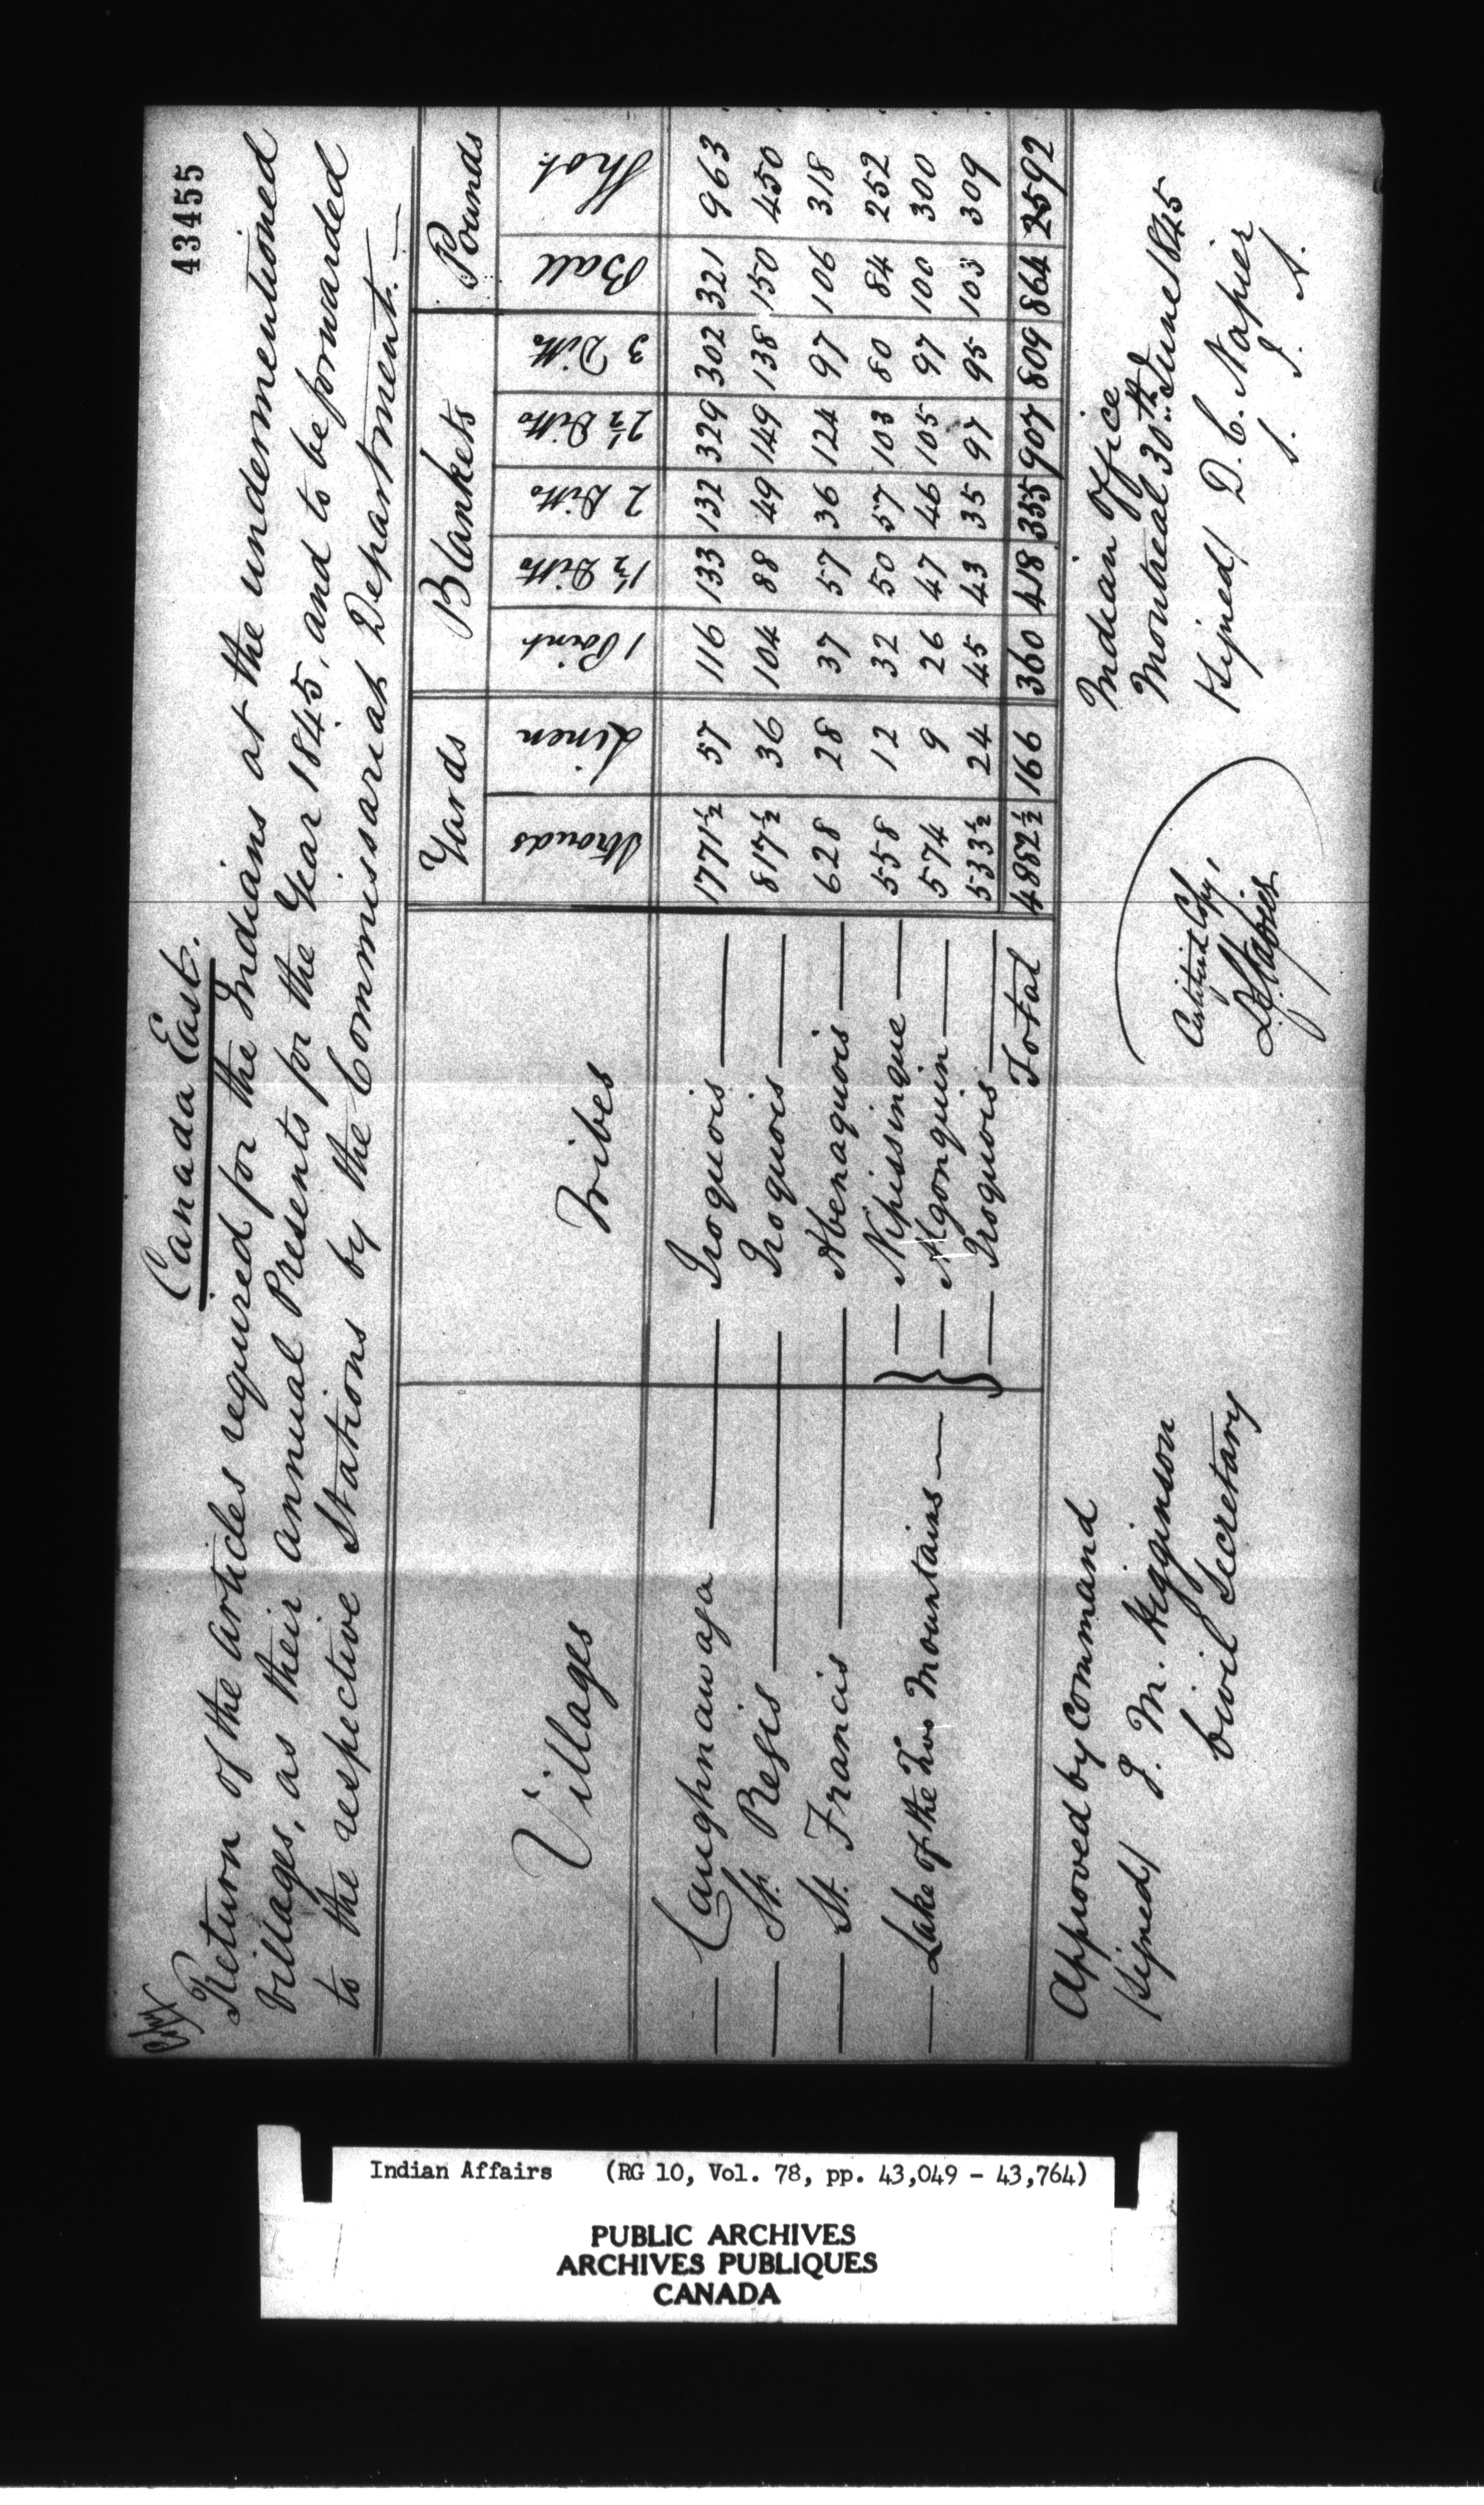 43455
Canada East.
Return of the Articles required for the Indians at the undermentioned
Villages, as their annual Presents for the Year 1845, and to be forwarded
to the respective Stations by the Commissariat Department.—
Villages Tribes Yards Blankets Pounds
Strouds Linen 1 Point 1½ Ditto 2 Ditto 2½ Ditto 3 Ditto Ball Shot.
— Caughnawaga — Iroquois — 1771½ 57 116 133 132 329 302 321 963
— St. Regis — Iroquois — 817½ 36 104 88 49 149 138 150 450
— St. Francis — Abenaquois — 628 28 37 57 36 124 97 106 318
— Nipissingue — 558 12 32 50 57 103 80 84 252
— Lake of the Two Mountains — } — Algonquin — 574 9 26 47 46 105 97 100 300
— Iroquois — 533½ 24 45 43 35 97 95 103 309
Total 4882½ 166 360 418 355 907 809 864 2592
Approved by Command
Signed/ J. M. Higginson
Civil Secretary
Certified Copy,
D C Napier
Indian Office
Montreal 30th June 1845
Signed/ D. C. Napier
S. I. A.
Indian Affairs (RG 10, Vol. 78, pp. 43,049 - 43,764)
PUBLIC ARCHIVES
ARCHIVES PUBLIQUES
CANADA